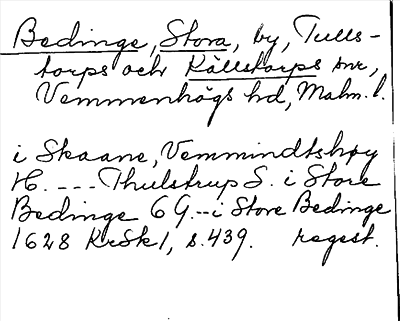 Bedinge, Stora, by, Tulls-
torps och Källstorps snr,
Vemmenhögs hd, Malm. l.
i Skaane, Vemmindtshøy
H. --- Thulstrup S. i Store
Bedinge 6 G. -- i Store Bedinge
1628 KrSk 1, s. 439. regest.